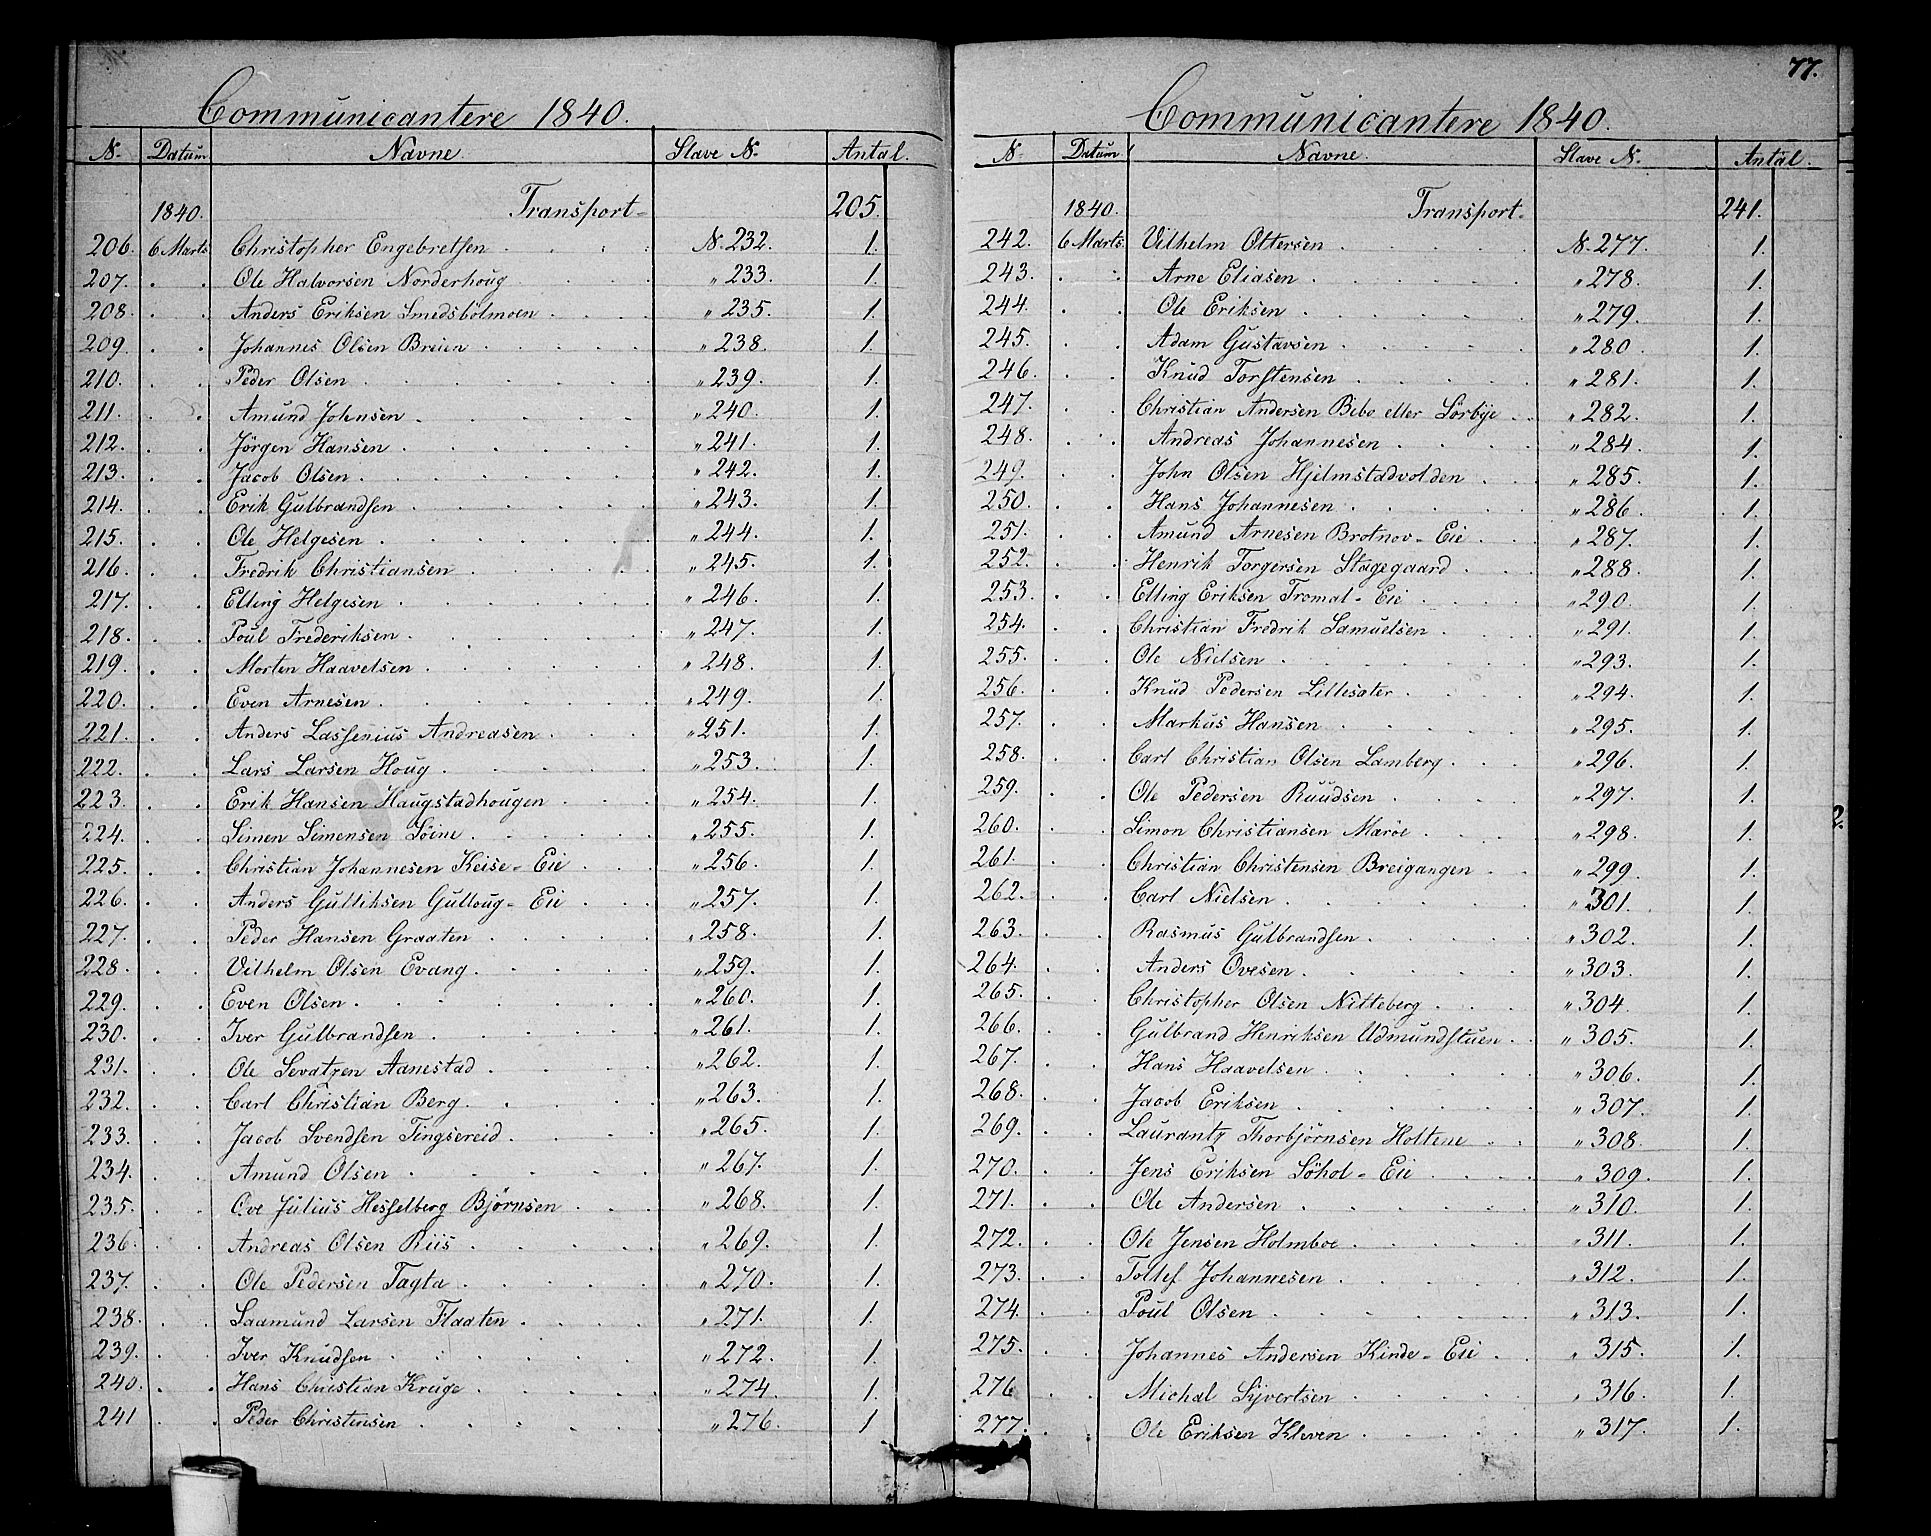 Communicantere 1840.
N. Datum Navne. Slave N. Antal.
1840. Transport 205.
206. 6 Marts Christopher Engebretsen N. 232. 1.
207. Ole Halvorsen Norderhoug „ 233. 1.
208. Anders Eriksen Smedsbölmoen „ 235. 1.
209. Johannes Olsen Breien „ 238. 1.
210. Peder Olsen „ 239. 1.
211. Amund Johnsen „ 240. 1.
212. Jörgen Hansen „ 241. 1.
213. Jacob Olsen „ 242. 1.
214. Erik Gulbrandsen „ 243. 1.
215. Ole Helgesen „ 244. 1.
216. Fredrik Christiansen „ 245. 1.
217. Elling Helgesen „ 246. 1.
218. Poul Frederiksen „ 247. 1.
219. Morten Haavelsen „ 248. 1.
220. Even Arnesen „ 249. 1.
221. Anders Lassenius Andreasen „ 251. 1.
222. Lars Larsen Houg „ 253. 1.
223. Erik Hansen Haugstadhougen „ 254. 1.
224. Simen Simensen Söine „ 255. 1.
225. Christian Johannesen Keise-Eie „ 256. 1.
226. Anders Gulliksen Gulloug-Eie „ 257. 1.
227. Peder Hansen Graaten „ 258. 1.
228. Vilhelm Olsen Evang „ 259. 1.
229. Even Olsen „ 260. 1.
230. Iver Gulbrandsen „ 261. 1.
231. Ole Sevatzen Aanestad „ 262. 1.
232. Carl Christian Berg „ 263. 1.
233. Jacob Svendsen Tingsereid „ 265. 1.
234. Amund Olsen „ 267. 1.
235. Ove Julius Hesselberg Björnsen „ 268. 1.
236. Andreas Olsen Riis „ 269. 1.
237. Ole Pedersen Tagta „ 270. 1.
238. Saamund Larsen Flaaten „ 271. 1.
239. Iver Knudsen „ 272. 1.
240. Hans Christian Kruge „ 274. 1.
241 Peder Christensen „ 276. 1
77.
Communicantere 1840.
N. Datum Navne. Slave N. Antal.
1840. Transport. 241.
242. 6 Marts. Vilhelm Ottersen N. 277. 1.
243. Arne Eliasen „ 278. 1.
244. Ole Eriksen „ 279. 1.
245. Adam Gustavsen „ 280. 1.
246. Knud Torstensen „ 281. 1.
247. Christian Andersen Bebo eller Sörbye „ 282. 1.
248. Andreas Johannesen „ 284. 1.
249. John Olsen Hjelmstadvolden „ 285. 1.
250. Hans Johannesen „ 286. 1.
251. Amund Arnesen Brotnov-Eie „ 287. 1.
252. Henrik Torgersen Stagegaard „ 288. 1.
253. Elling Eriksen Tromal-Eie „ 290. 1.
254. Christian Fredrik Samuelsen „ 291. 1.
255. Ole Nielsen „ 293. 1.
256. Knud Pedersen Lillesater „ 294. 1.
257. Markus Hansen „ 295. 1.
258. Carl Christian Olsen Lamberg „ 296. 1.
259. Ole Pedersen Ruudsen „ 297. 1.
260. Simon Christiansen Maröe „ 298. 1.
261. Christian Christensen Breigangen „ 299. 1.
262. Carl Nielsen „ 301. 1.
263. Rasmus Gulbrandsen „ 302. 1.
264. Anders Ovesen „ 303. 1.
265. Christopher Olsen Nitteberg „ 304. 1.
266. Gulbrand Henriksen Udmundstuen „ 305. 1.
267. Hans Haavelsen „ 306. 1.
268. Jacob Eriksen „ 307. 1.
269. Laurantz Thorbjörnsen Holtene „ 308. 1.
270. Jens Eriksen Söhol-Eie „ 309. 1.
271. Ole Andersen „ 310. 1.
272. Ole Jensen Holmboe „ 311. 1.
273. Tollef Johannesen „ 312. 1.
274. Poul Olsen „ 313. 1.
275. Johannes Andersen Kinde-Eie „ 315. 1.
276 Michal Syvertsen „ 316. 1.
277. Ole Eriksen Kleven „ 317. 1.